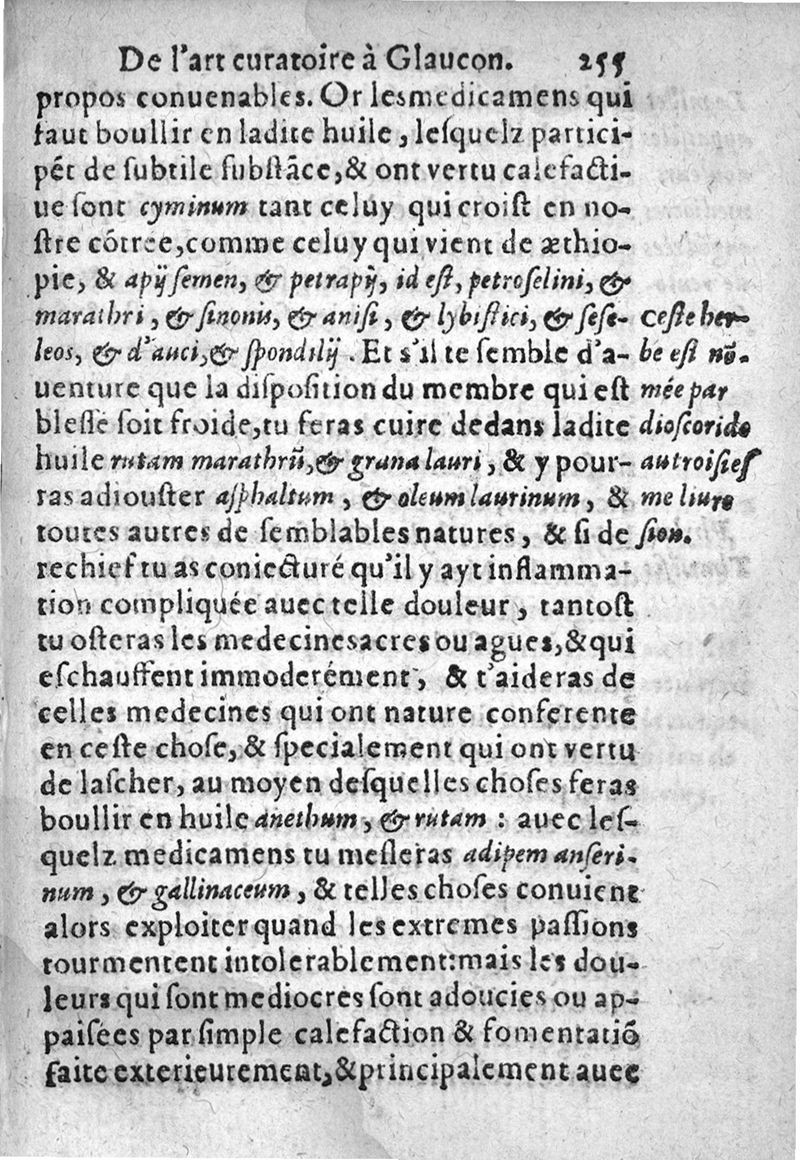 De l'art curatoire à Glaucon. 255
propos conuenables. Or les medicamens qui
faut boullir en ladite huile, leſquelz partici-
pét de ſubtile ſubſtãce, & ont vertu calefacti-
ue ſont cyminum tant celuy qui croiſt en no-
ſtre cõtree, comme celuy qui vient de æthio-
pie, & apij ſemen, & petrapij, id eſt, petroſelini, &
marathri, & ſinonis, & aniſi, & lybiſtici, & ſeſe-
leos, & d'auci, & ſpondilij. Et s'il te ſemble d'a-
uenture que la diſpoſition du membre qui eſt
bleſſé ſoit froide, tu feras cuire dedans ladite
huile rutam marathrũ, & grana lauri, & y pour-
ras adiouſter aſphaltum, & oleum laurinum, &
toutes autres de ſemblables natures, & ſi de
rechief tu as coniecturé qu'il y ayt inflamma-
tion compliquée auec telle douleur, tantoſt
tu oſteras les medecines acres ou agues, & qui
eſchauffent immoderément, & t'aideras de
celles medecines qui ont nature conferente
en ceſte choſe, & ſpecialement qui ont vertu
de laſcher, au moyen deſquelles choſes feras
boullir en huile anethum, & rutam : auec leſ-
quelz medicamens tu meſleras adipem anſeri-
num, & gallinaceum, & telles choſes conuient
alors exploiter quand les extremes paſſions
tourmentent intolerablement: mais les dou-
leurs qui ſont mediocres ſont adoucies ou ap-
paiſees par ſimple calefaction & fomentatiõ
faite exterieurement, & principalement auec
ceſte her-
be eſt nõ-
mée par
dioſcoride
au troiſieſ
me liure
ſion.